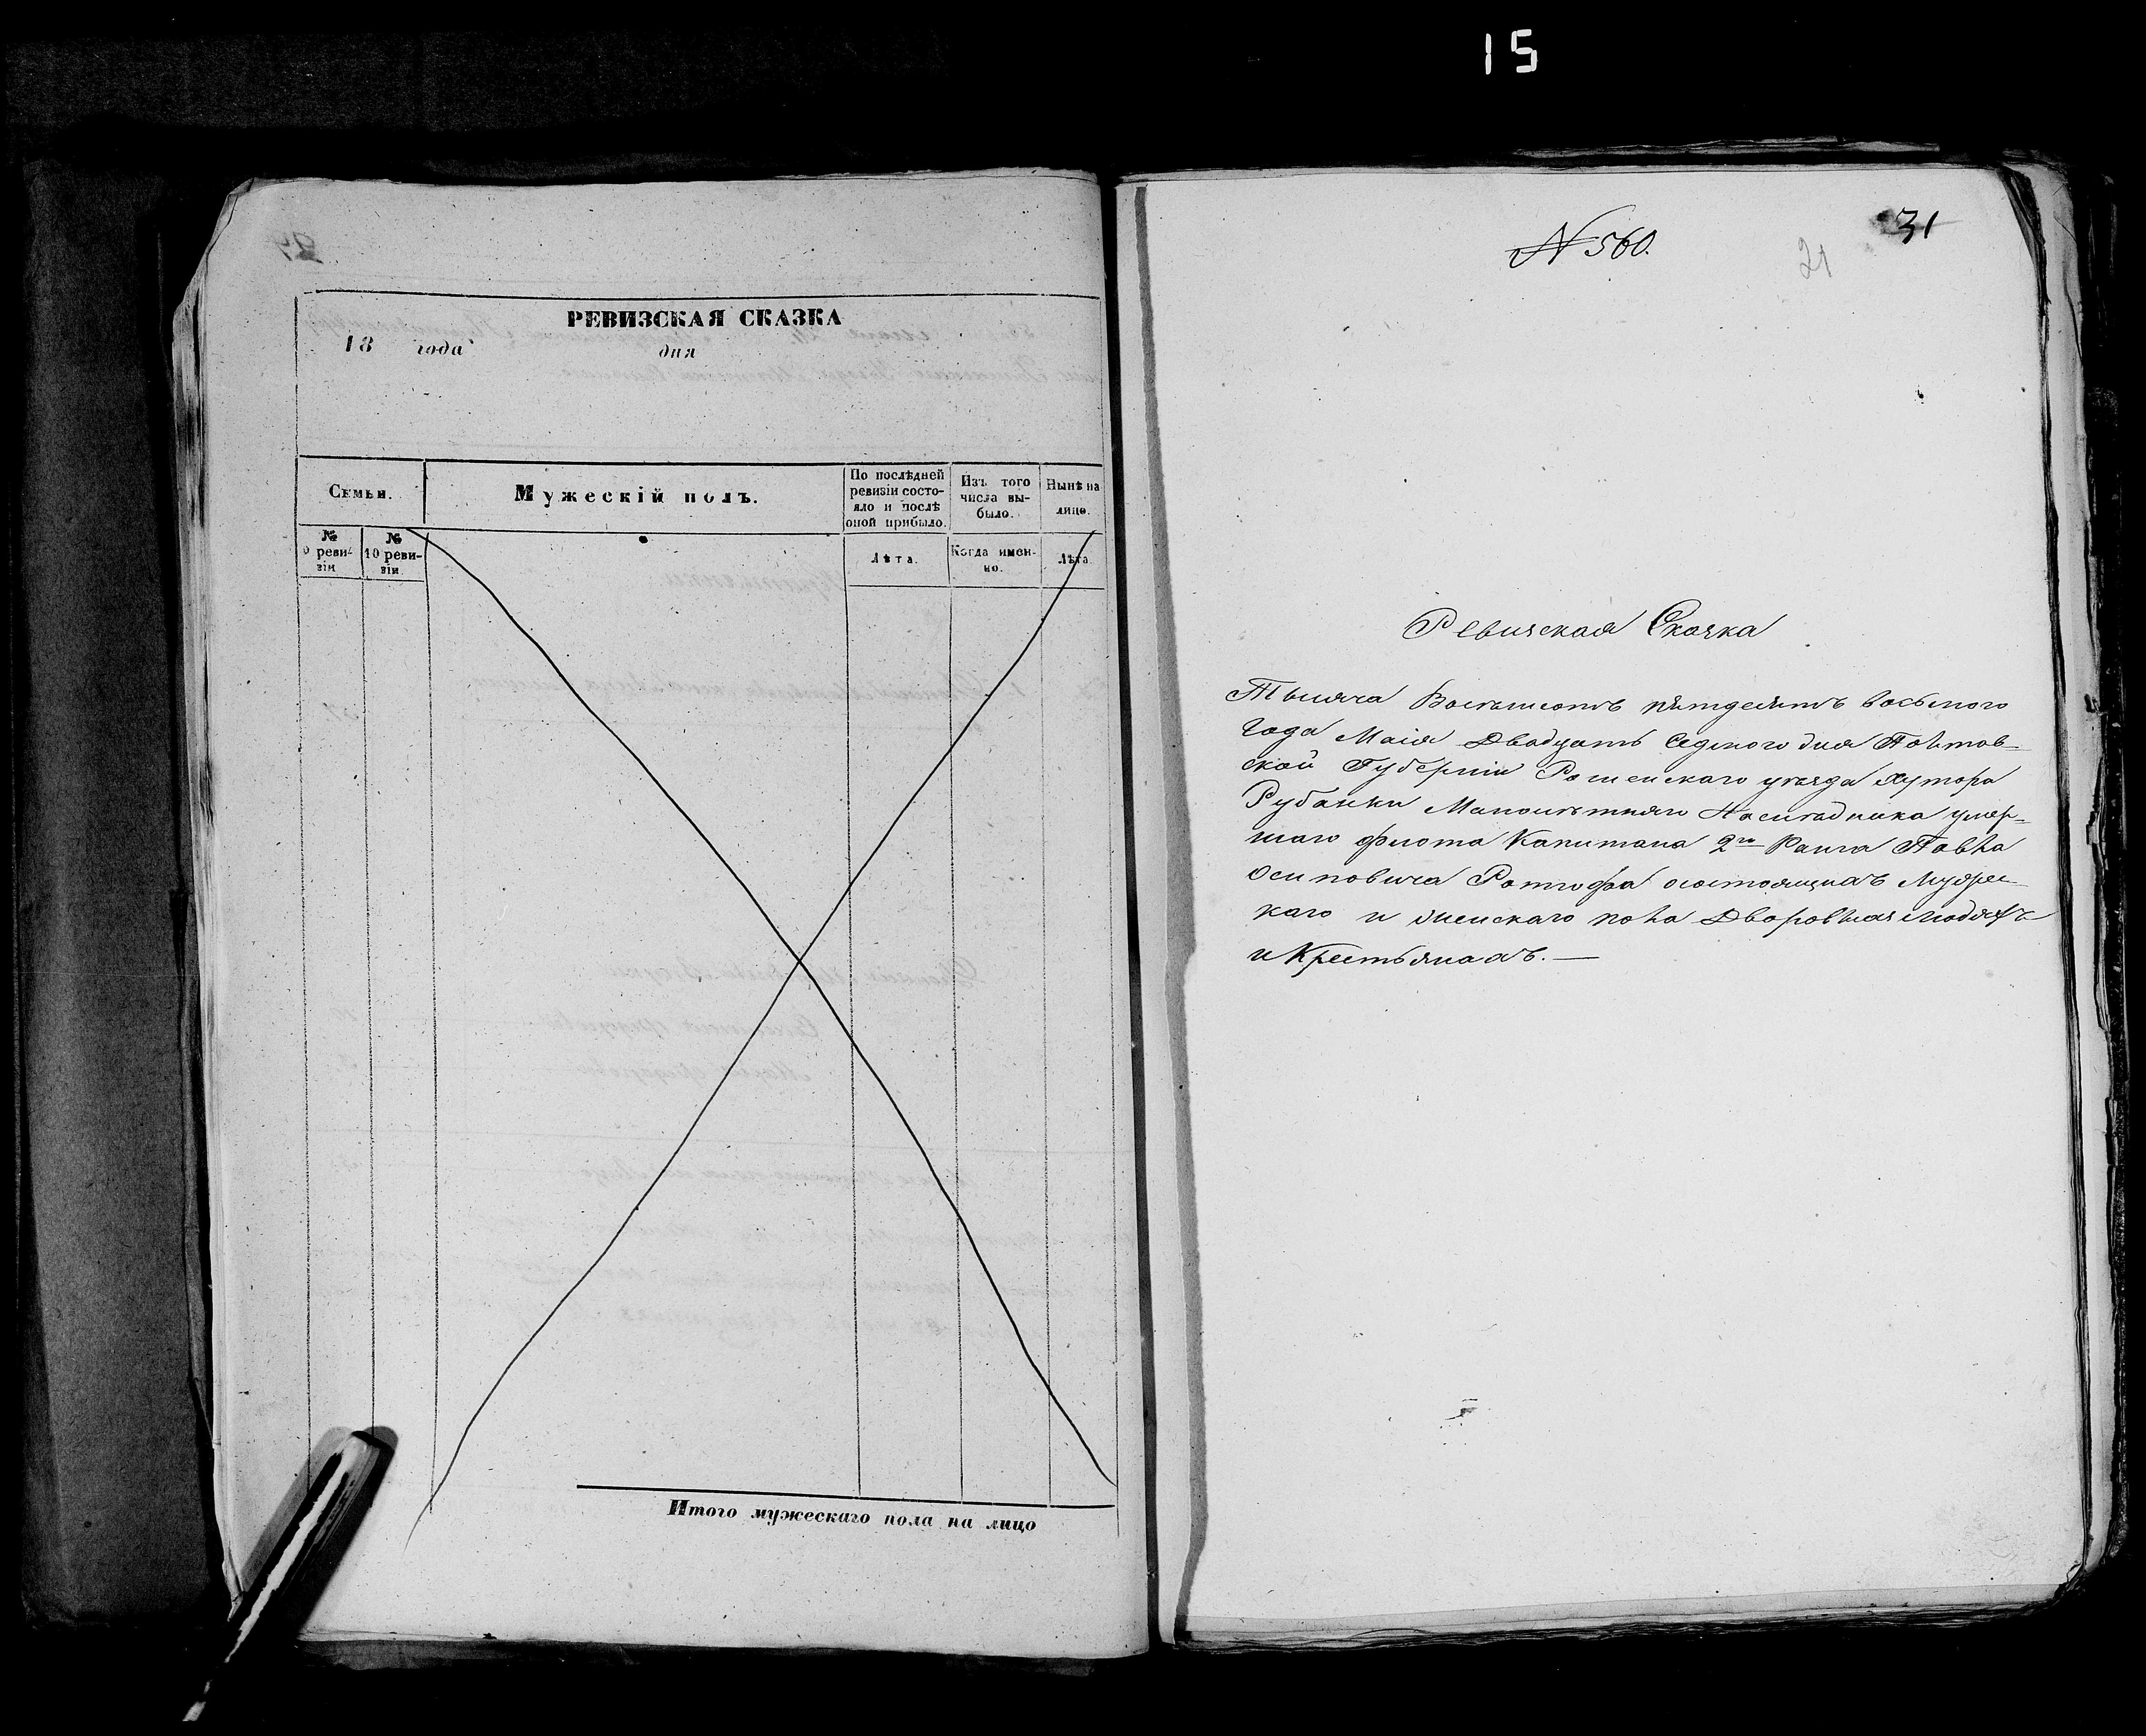 15
РЕВИЗСКАЯ СКАЗКА
18 года дня
Семьи.
Мужескій полъ.
По послѣдней
ревизіи состо-
яло и послѣ
оной прибыло.
Изъ того
числа вы-
было.
Нынѣ на
лицо.
№
реви-
зіи
№
10 реви-
зіи.
Лѣта.
Когда имен-
но.
Лѣта.
Итого мужескаго пола на лицо
N 560.
31
21
Ревизская Сказка
Тысяча Восемьсотъ пятдесятъ восьмого
Года Маія Двадцать Седмого дня Полтав-
ской Губерніи Роменскаго уезда Хутора
Рубанки Малолѣтняго Наслѣдника умер-
шаго флота Капитана 2го Ранга Павла
Осиповича состоящихъ Мужес-
каго и женскаго пола Дворовыхъ людяхъ
и Крестьянахъ. —